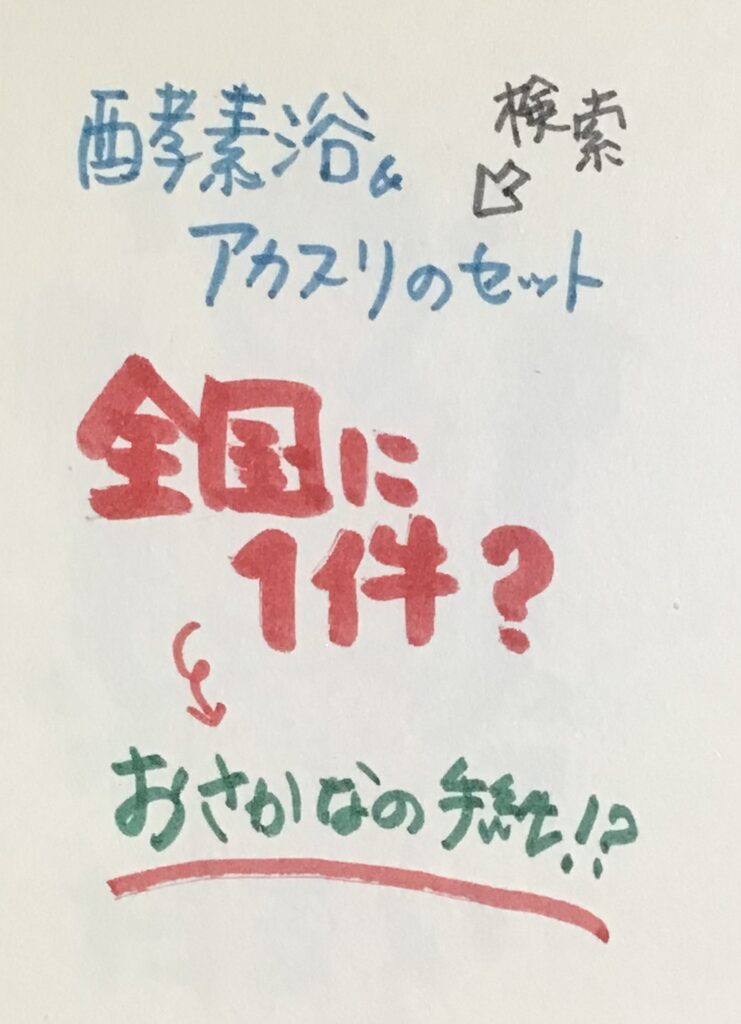 酵素浴&
検索
アカスリのセット
全国に
1件?
おさかなの手紙!?